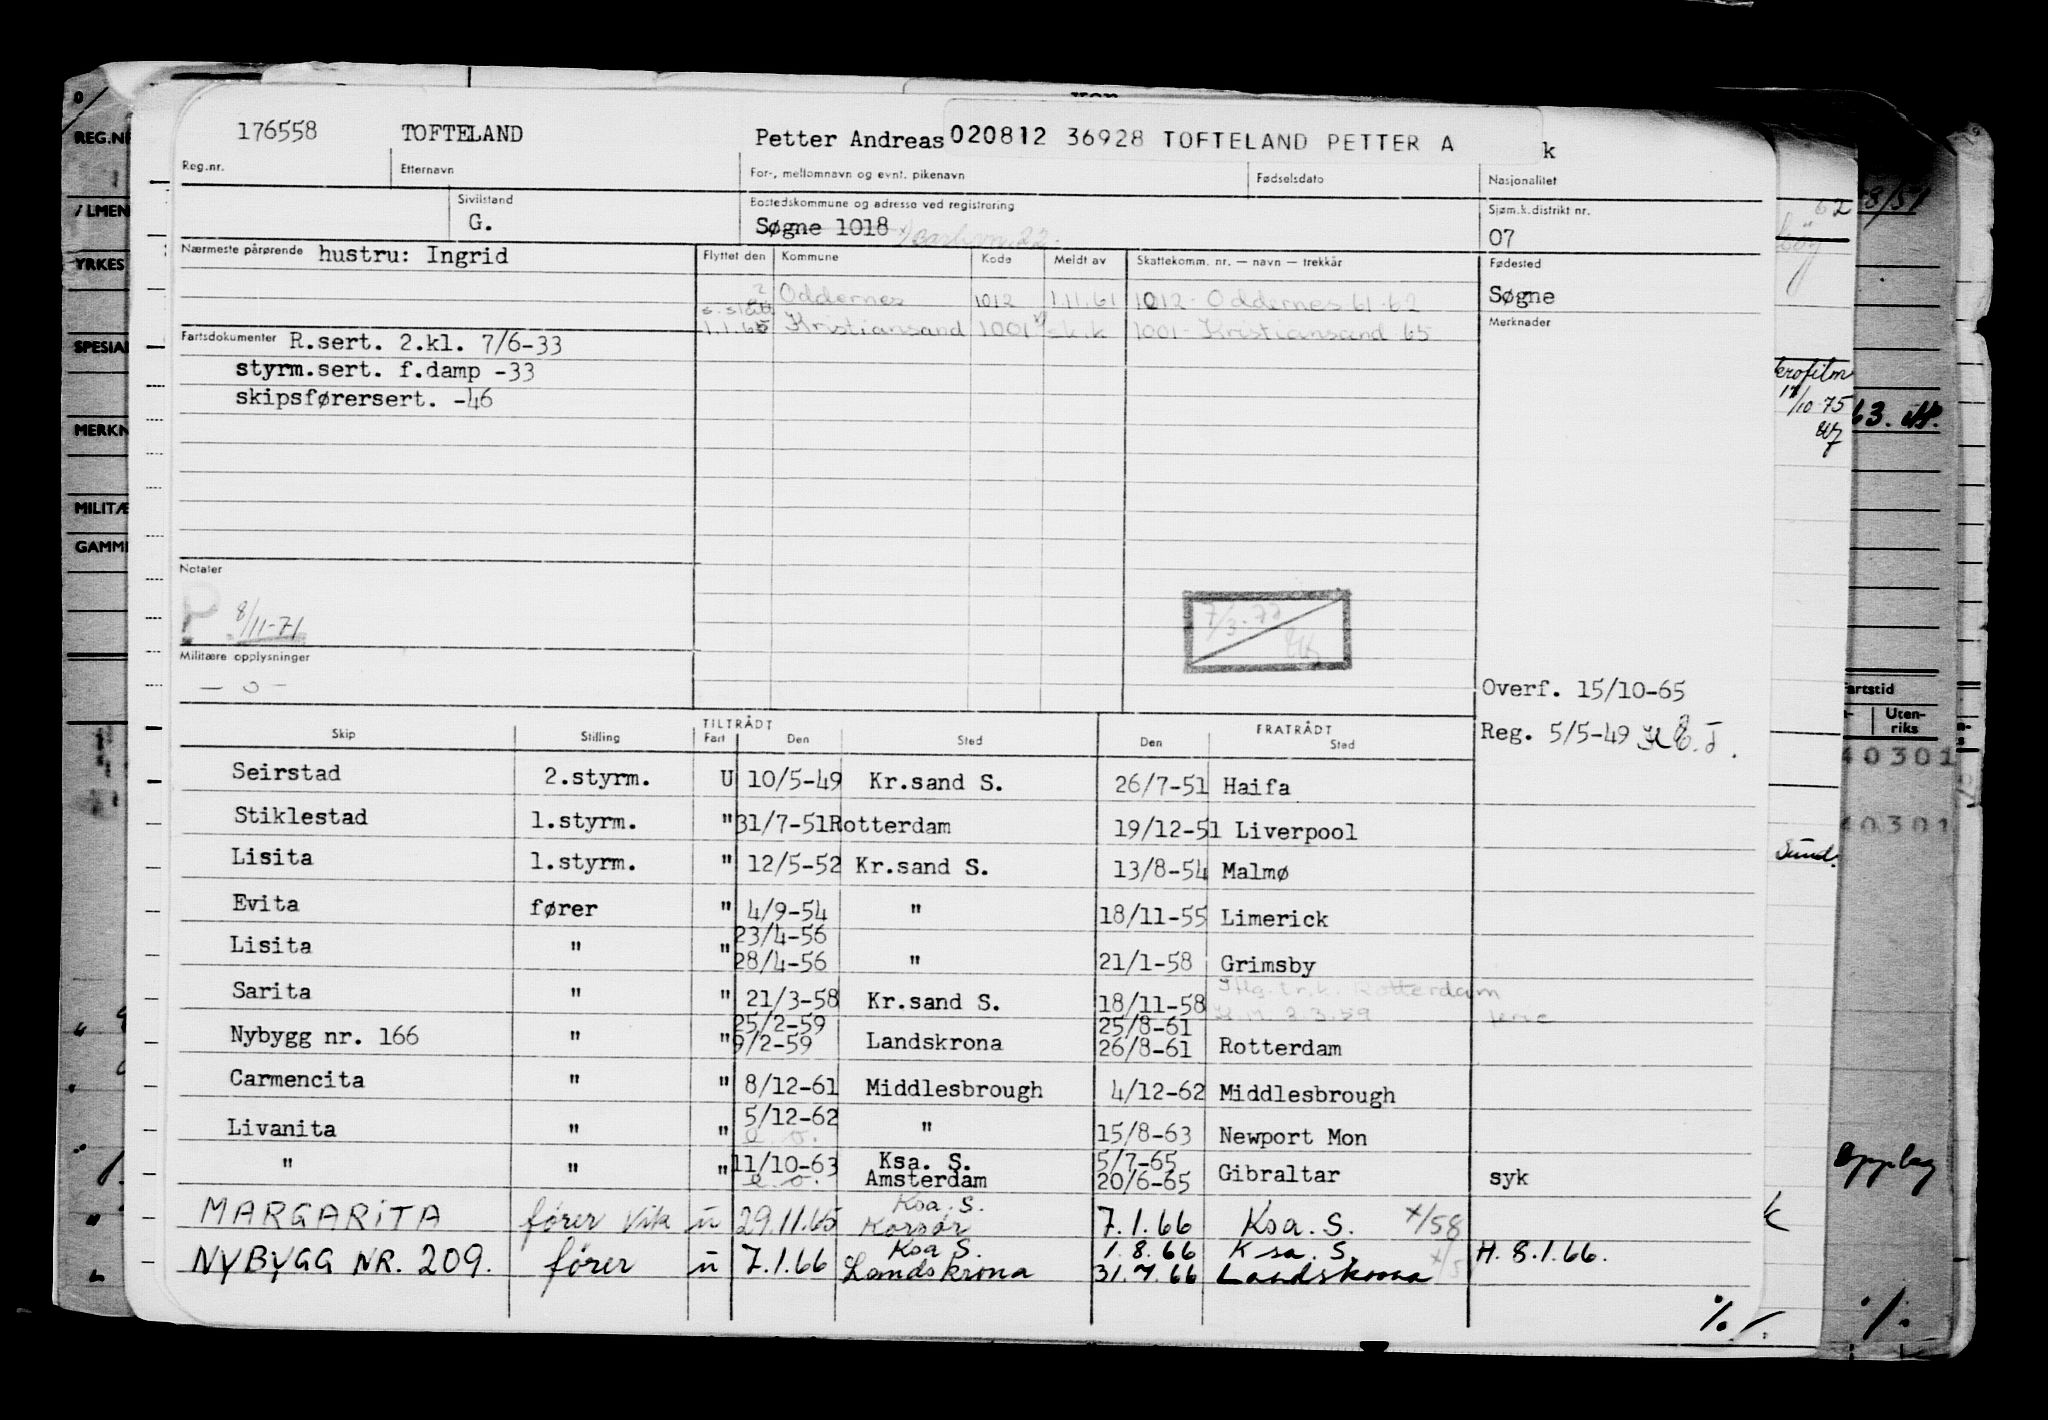 176558 TOFTELAND Petter Andreas 020812 36928 TOFTELAND PETTER A k
Reg.nr. Etternavn For-, mellomnavn og evnt. pikenavn Fødselsdato Nasjonalitet
Sivilstand Bostedskommune og adresse ved registrering Sjøm.k.distrikt nr.
G. Søgne 1018 07
Nærmeste pårørende hustru: Ingrid Flyttet den Kommune Kode Meldt av Skattekomm. nr. — navn — trekkår Fødested
2 Oddernes 1012 1.11.61 1012 - Oddernes 61-62 Søgne
1.1.65 Kristiansand 1001 sk.k 1001 - Kristiansand 65 Merknader
Fartsdokumenter R.sert. 2.kl. 7/6-33
styrm.sert. f.damp -33
skipsførersert. -46
Notater
P. 8/11-71
7/3-72
Militære opplysninger
— o —
Overf. 15/10-65
TILTRÅDT FRATRÅDT
Skip Stilling Fart Den Sted Den Sted
Reg. 5/5-49
Seirstad 2.styrm. U 10/5-49 Kr.sand S. 26/7-51 Haifa
Stiklestad 1.styrm. " 31/7-51 Rotterdam 19/12-51 Liverpool
Lisita 1.styrm. " 12/5-52 Kr.sand S. 13/8-54 Malmø
Evita fører " 4/9-54 " 18/11-55 Limerick
23/4-56
Lisita " " 28/4-56 " 21/1-58 Grimsby
Sarita " " 21/3-58 Kr.sand S. 18/11-58 Rotterdam
2.3.59
25/2-59 25/8-61
Nybygg nr. 166 " " 9/2-59 Landskrona 26/8-61 Rotterdam
Carmencita " " 8/12-61 Middlesbrough 4/12-62 Middlesbrough
5/12-62
Livanita " " " 15/8-63 Newport Mon
11/10-63 Ksa. S. 5/7-65
" " " Amsterdam 20/6-65 Gibraltar syk
Ksa. S.
MARGARITA fører Vik u 29.11.65 Korsør 7.1.66 Ksa. S. x/58
Ksa S. 1.8.66 Ksa. S. H. 8.1.66.
NYBYGG NR. 209. fører u 7.1.66 Landskrona 31.7.66 Landskrona
%.
REG.NR
/ LMEN
YRKES
SPESIAL
MERKN
MILITÆ
GAMM
8/51
62
17/10-75
63.
artstid
Uten-
riks
40301
40301
Sund.
Opplag
%.